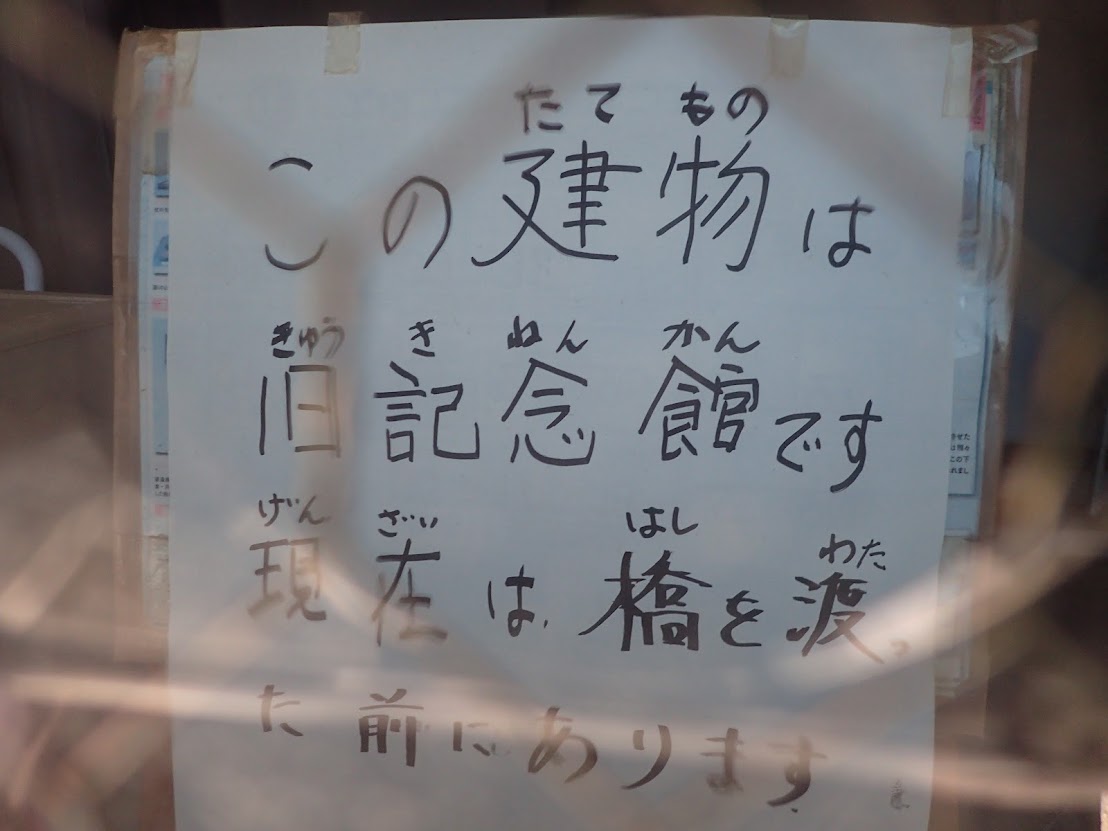 たてもの
この建物は
きゅうきねんかん
旧記念館です
げんざいはしわた
現在は橋を渡っ
た前にあります